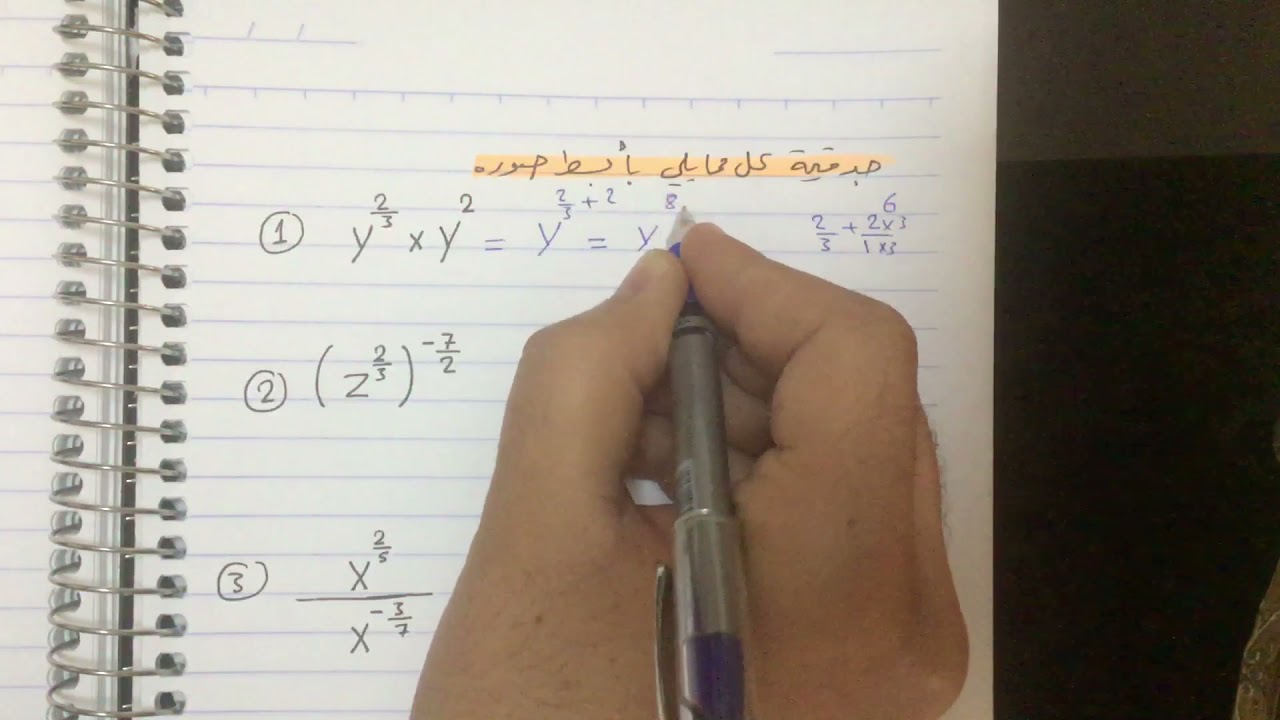 جد قيمة كل مما يلي بأبسط صوره
① y^(2/3) × y^2 = y^(2/3 + 2) = y^8 2/3 + 2×3/1×3 6
② (z^(2/3))^(-7/2)
③ x^(2/5) / x^(-3/7)